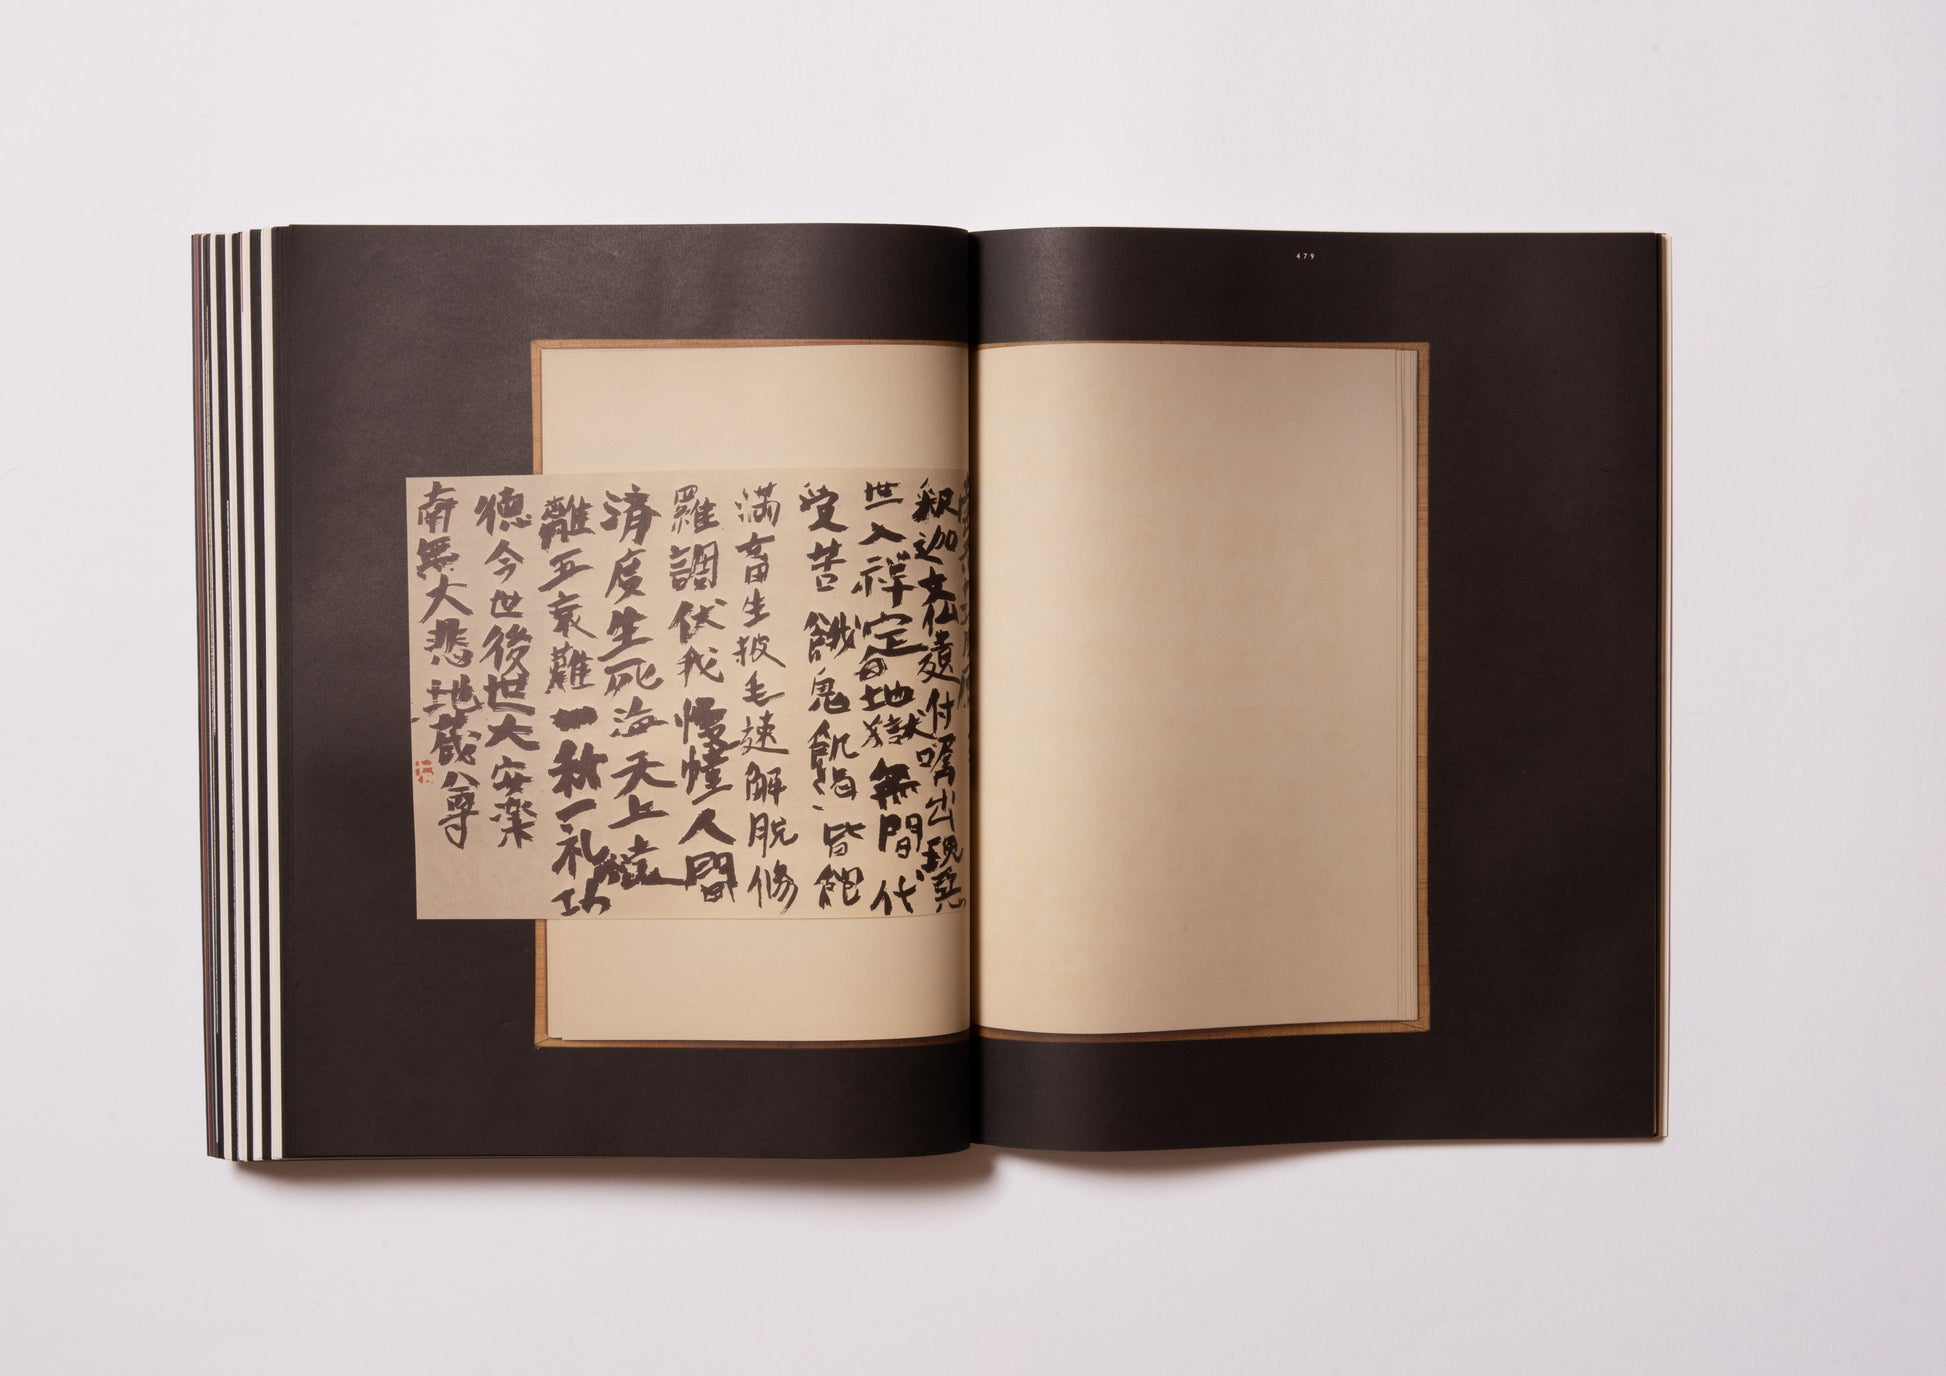 479
釈迦文仏遺付嘱出現悪
世入禅定毎地獄無間代
受苦餓鬼飢渇皆飽
満畜生披毛速解脱脩
羅調伏我慢幢人間
済度生死海天上遠
離五衰難一称一礼功
徳今世後世大安楽
南無大悲地蔵尊